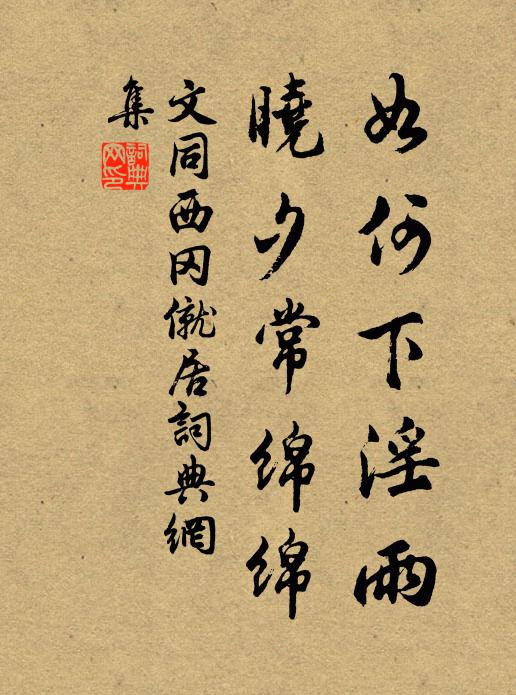 如何下淫雨
曉夕常綿綿
文同西冈僦居詞典網
集
詞典網印